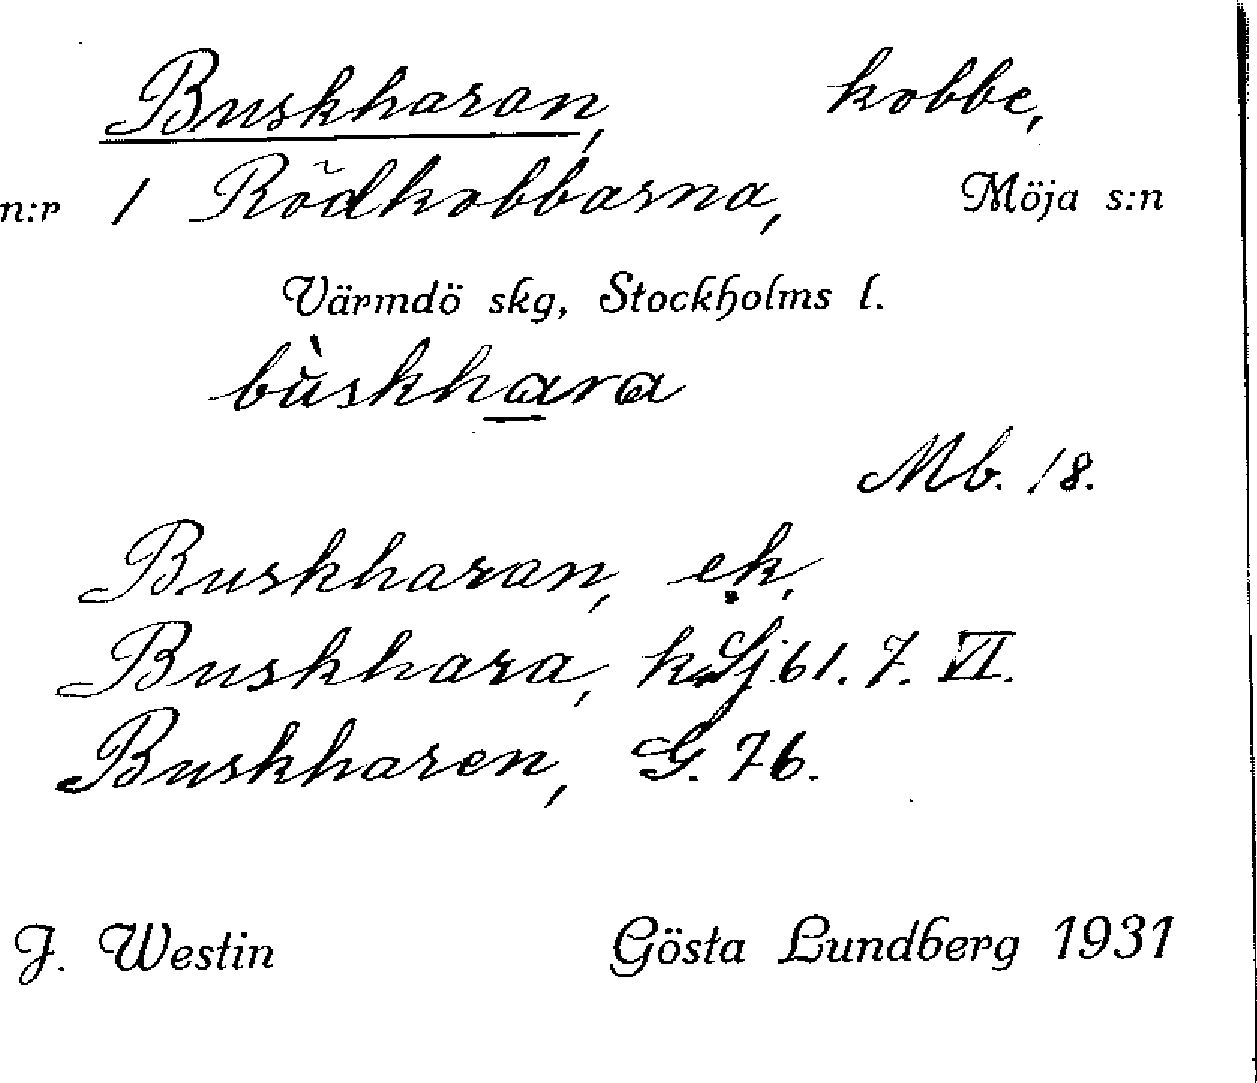 Buskharan, kobbe,
n:r 1 Rödkobbarna, Möja s:n
Värmdö skg, Stockholms l.
bùskhara
Mb. 18.
Buskharan, ek,
Buskhara, k Sj. 61. 7. VI.
Buskharen, G. 76.
J. Westin Gösta Lundberg 1931